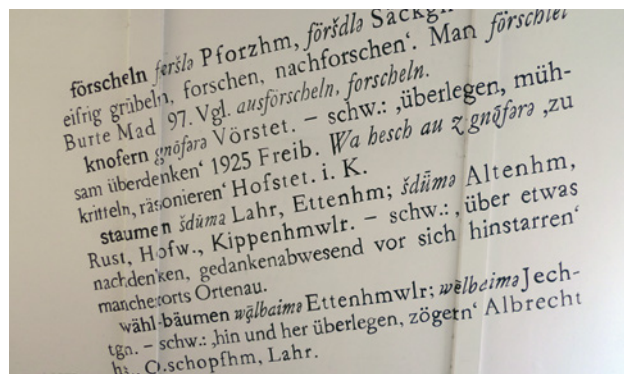 förscheln feršlə Pforzhm, föršdlə Sackgn
eifrig grübeln, forschen, nachforschen‘. Man förschtet
Burte Mad 97. Vgl. ausforscheln, forscheln.
knofern gnōfərə Vörstet. – schw.: ‚überlegen, müh-
sam überdenken‘ 1925 Freib. Wa hesch au z gnōfərə ‚zu
kritteln, räsonieren‘ Hofstet. i. K.
staumen šdūmə Lahr, Ettenhm; šdǖmə Altenhm,
Rust, Hofw., Kippenhmwlr. – schw.: ‚über etwas
nachdenken, gedankenabwesend vor sich hinstarren‘
mancherorts Ortenau.
wähl-bäumen wạ̄lbaimə Ettenhmwlr; wèlbeimə Jech-
tgn. – schw.: ‚hin und her überlegen, zögern‘ Albrecht
O.schopfhm, Lahr.